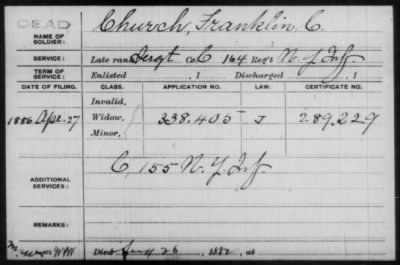 DEAD
NAME OF SOLDIER: Church, Franklin C.
SERVICE: Late rank Sergt Co. C 164 Reg't N.Y. Inf.
TERM OF SERVICE: Enlisted , 1 Discharged , 1
DATE OF FILING. CLASS. APPLICATION NO. LAW. CERTIFICATE NO.
Invalid,
1886 Apr. 27 Widow, 338.405 J 289.229
Minor,
ADDITIONAL SERVICES: C, 155 N.Y. Inf.
REMARKS:
Died 26 , 188 , at